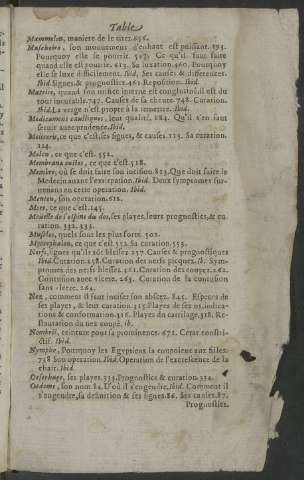 Table
Mammelon, maniere de le tirer. 656.
Maschoire, son mouvement d'enhaut est puissant. 593.
Pourquoy elle se pourrit. 507. Ce qu'il faut faire
quand elle est pourrie. 613. Sa luxation. 460. Pourquoy
elle se luxe difficilement. Ibid. Ses causes & differences.
Ibid. Signes, & prognostics. 461. Reposition. Ibid.
Matrice, quand son orifice interne est conglutiné, il est du
tout incurable. 747. Causes de sa cheute. 748. Curation.
Ibid. La verge n'est propre à la remettre. Ibid.
Medicamens caustiques, leur qualité. 284. Qu'il s'en faut
servir avec prudence. Ibid.
ce que c'est, ses signes, & causes. 123. Sa curation.
124.
ce que c'est. 552.
Membrana ce que c'est. 518.
Membre, où se doit faire son incision. 823. Que doit faire le
Medecin avant l'extirpation. Ibid. Deux symptomes sur-
venans en cette operation. Ibid.
Menton, son operation. 612.
ce que c'est. 145.
Mouelle de l'espine du dos, ses playes, leurs prognostics, & cu
ration. 332. 333.
Muscles, quels sont les plus forts. 502.
ce que c'est. 552. Sa curation. 553.
Nerfs, signes qu'ils sõt blessez. 257. Causes & prognostiques
Ibid. Curation. 258. Curation des nerfs picquez. Ib. Sym-
ptomes des nerfs blessez. 261. Curation des coupez. 262.
Contusion avec vlcere. 263. Curation de la concussion
sans vlcere. 264.
Nez, comment il faut inciser son abscez. 845. Especes de
ses playes, & leur curation. 315. Playes de ses os, indica-
tions & conformation. 316. Playes du cartilage. 318. Re-
stauration du nez coupé. ib.
Nombril, ceinture pour sa prominence. 672. Cerat constri-
ctif. Ibid.
Nymphe, Pourquoy les Egyptiens la coupoient aux filles.
758 Son operation. Ibid. Operation de l'excrescence de la
chair. Ibid.
Oesophage, ses playes. 333. Prognostics & curation. 334.
Oedeme, son nom. 84. D'où il s'engendre. Ibid. Comment il
s'engendre, sa definition & ses signes. 86. Ses causes. 87.
Prognostics.